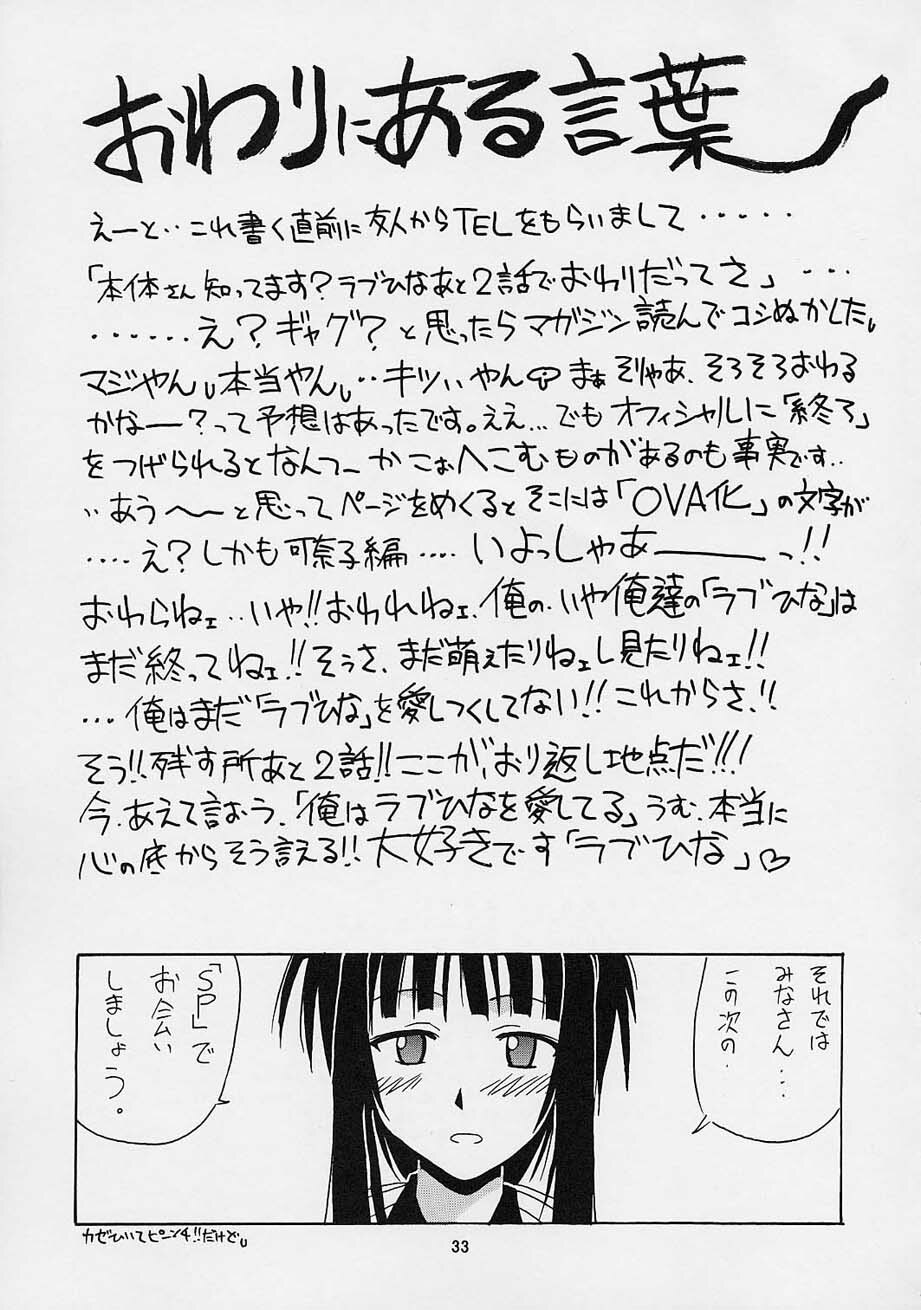 おわりにある言葉
えーと‥これ書く直前に友人からTELをもらいまして・・・・・
「本体さん知ってます？ラブひなあと2話でおわりだってさ」・・・
・・・・・・え？ギャグ？と思ったらマガジン読んでコシぬかした。
マジやん。本当やん。‥キツいやん まぁそりゃあ、そろそろおわる
かなー？って予想はあったです。ええ…でもオフィシャルに「終了」
をつげられるとなんつーかこぉへこむものがあるのも事実です‥
‥あう〜〜と思ってページをめくるとそこには「OVA化」の文字が
・・・・え？しかも可奈子編・・・・いよっしゃあーーーっ!!
おわらねェ‥いや!!おわれねェ、俺の、いや俺達の「ラブひな」は
まだ終ってねェ!!そうさ、まだ萌えたりねェし見たりねェ!!
・・・俺はまだ「ラブひな」を愛しつくしてない!!これからさ!!
そう!!残す所あと2話!!ここが、おり返し地点だ!!!
今、あえて言おう、「俺はラブひなを愛してる」うむ、本当に
心の底からそう言える!!大好きです「ラブひな」♡
それでは
みなさん・・・
この次の
「SP」で
お会い
しましょう。
カゼひいてピンチ!!だけど。
33